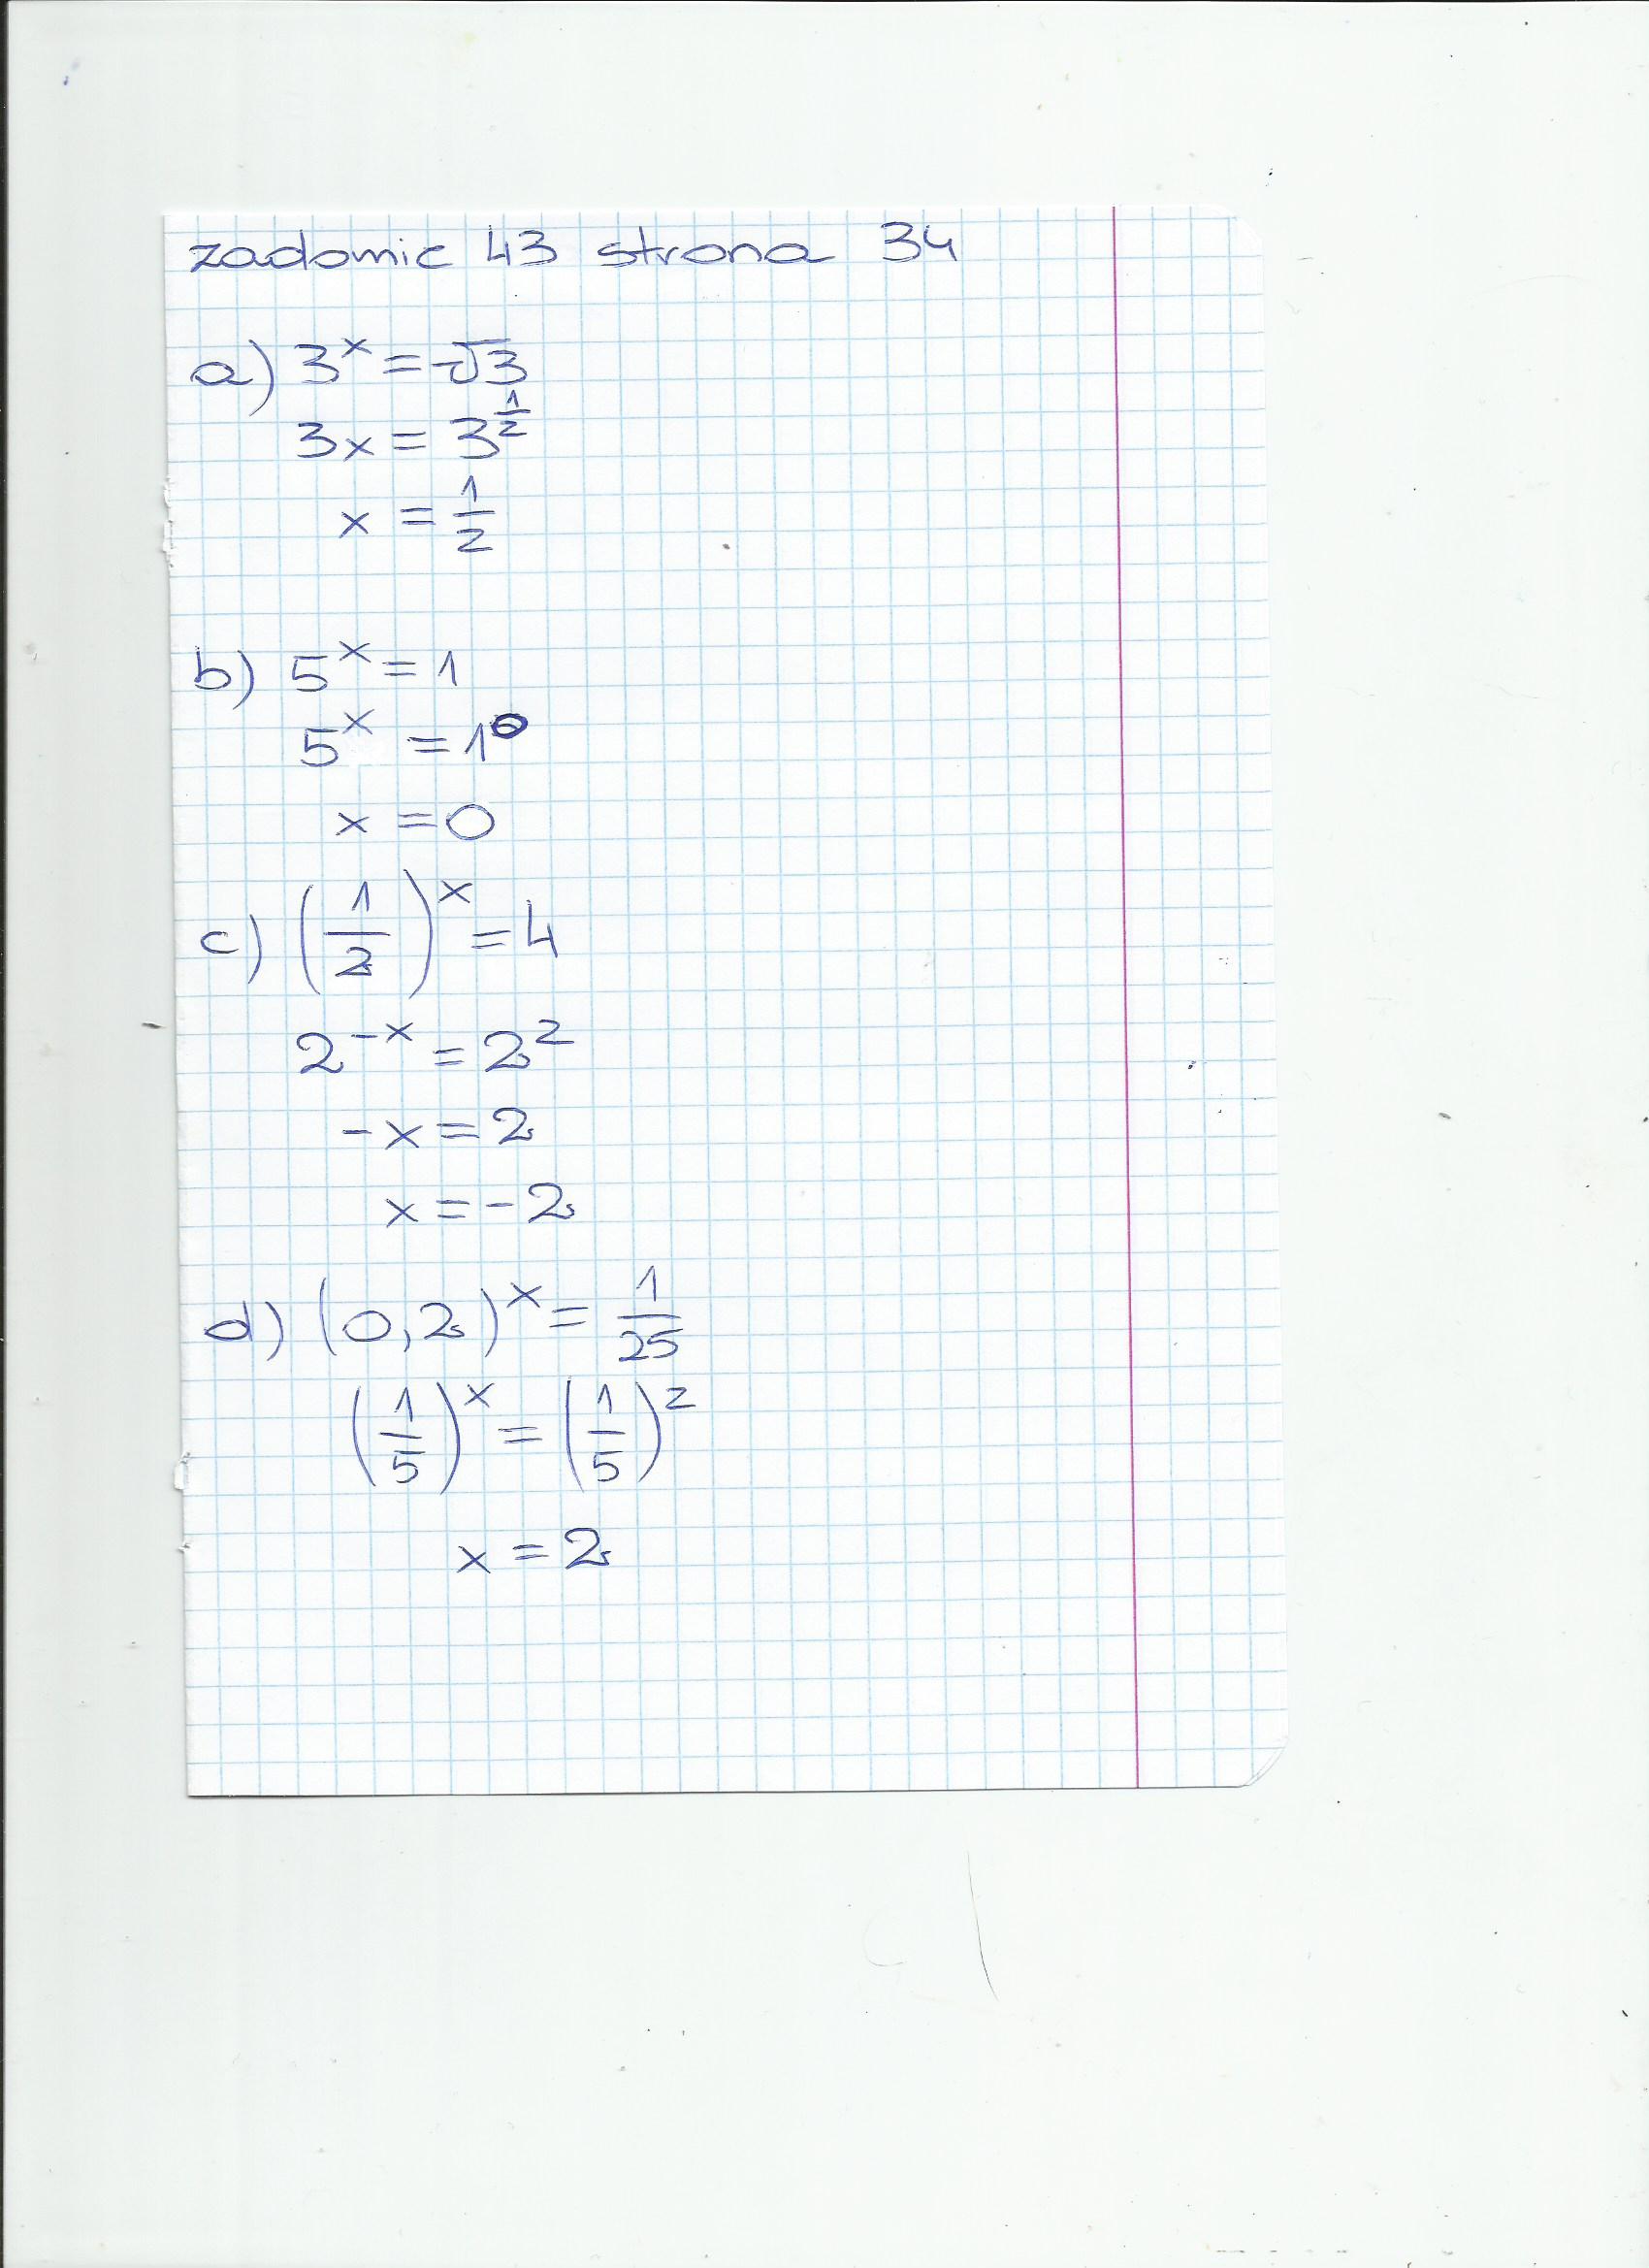 zadanie 43 strona 34
a) 3^x = √3
3x = 3^(1/2)
x = 1/2
b) 5^x = 1
5^x = 1^0
x = 0
c) (1/2)^x = 4
2^(-x) = 2^2
-x = 2
x = -2
d) (0,2)^x = 1/25
(1/5)^x = (1/5)^2
x = 2